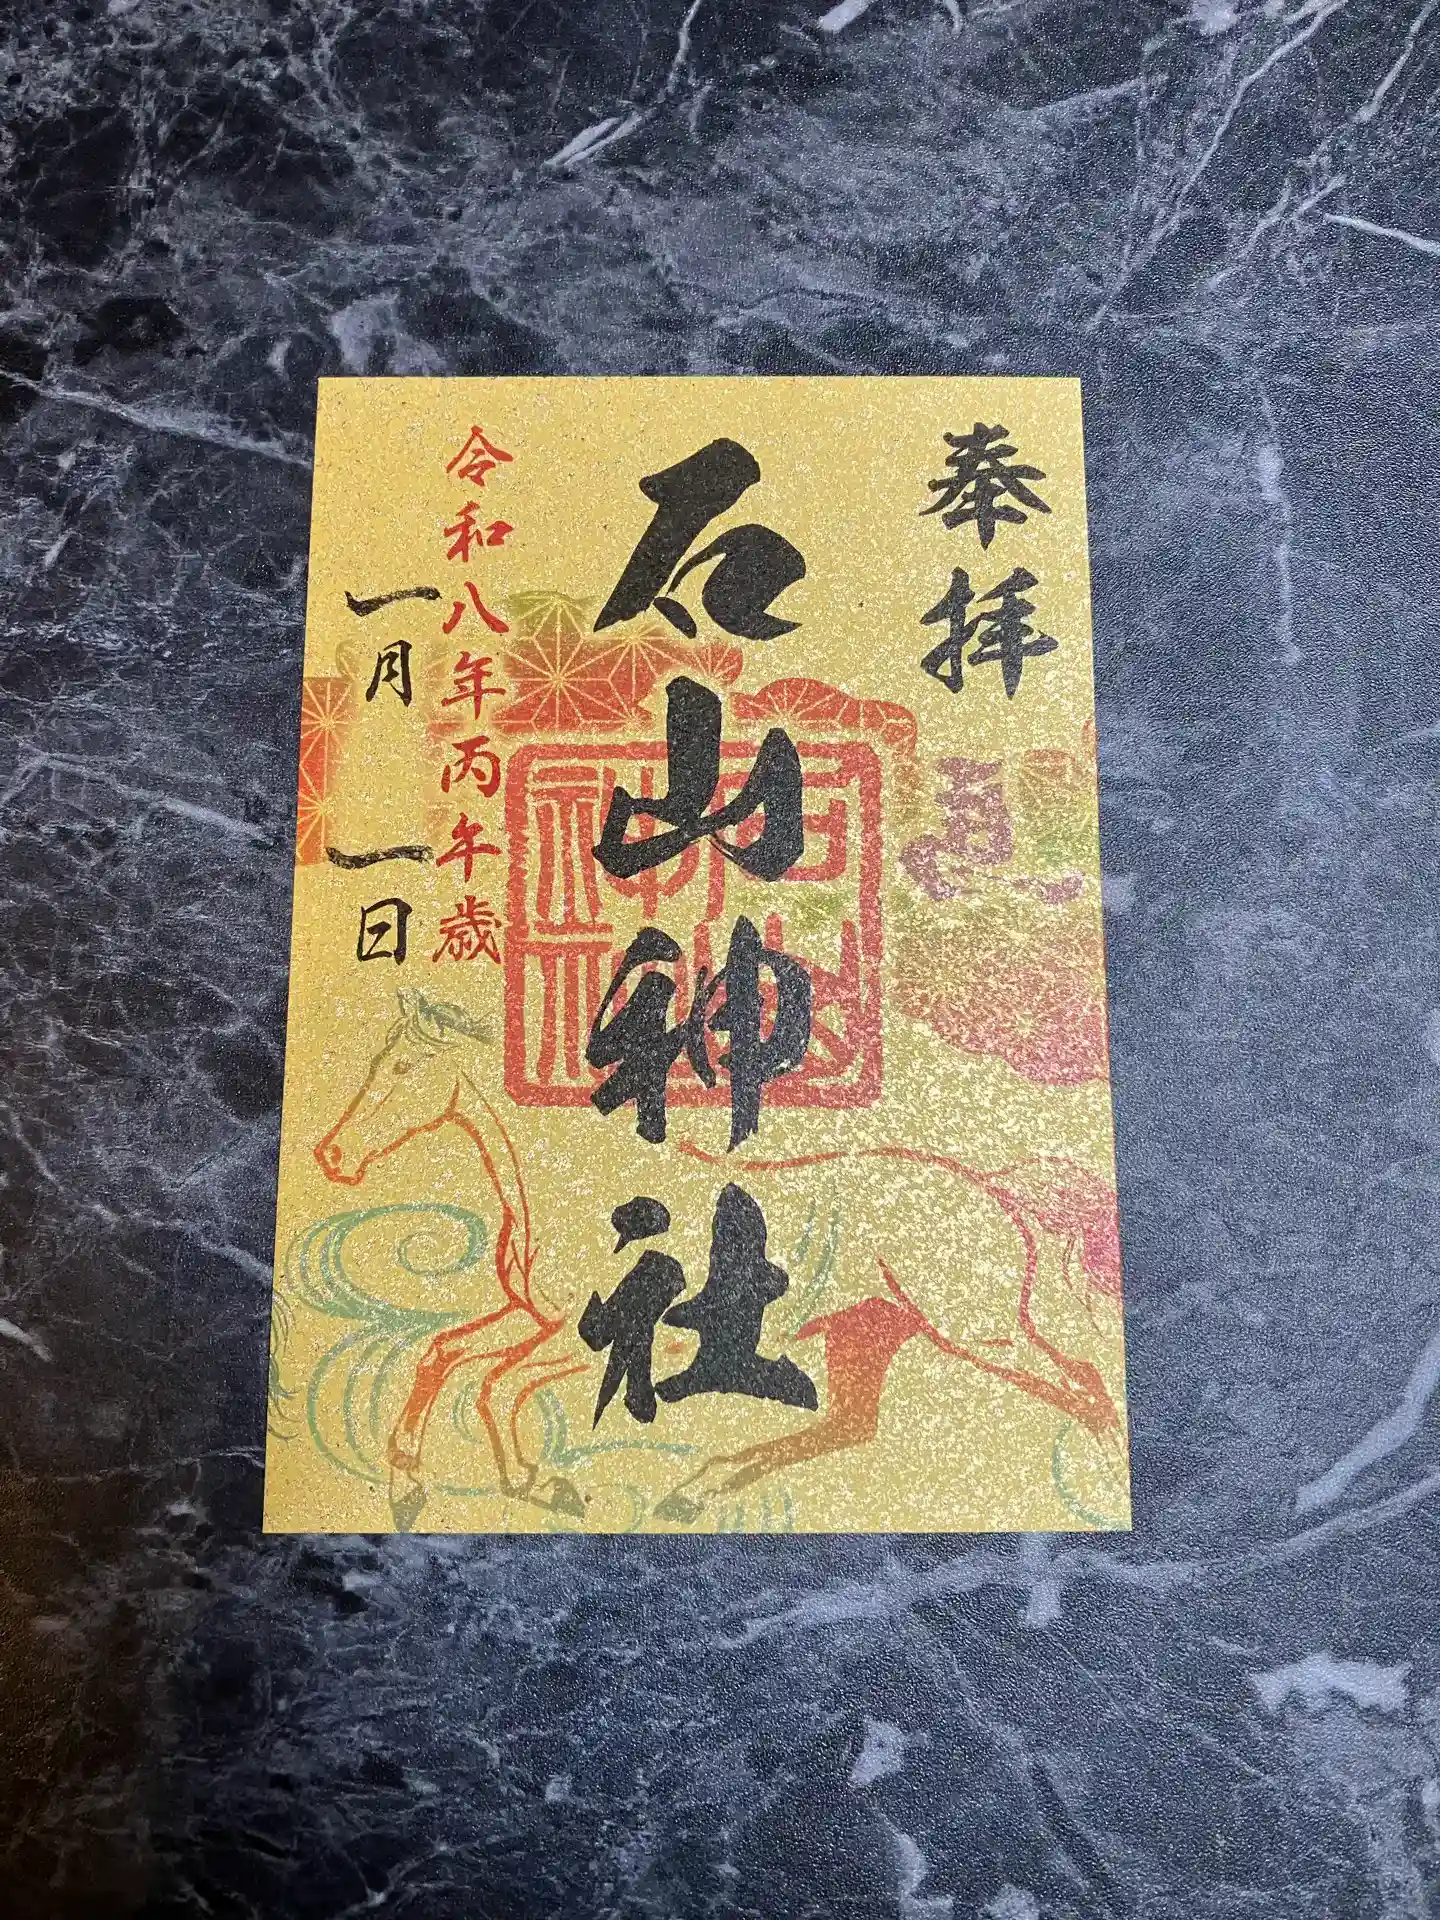 奉拝
石山神社
石山神社
令和八年丙午歳
一月一日